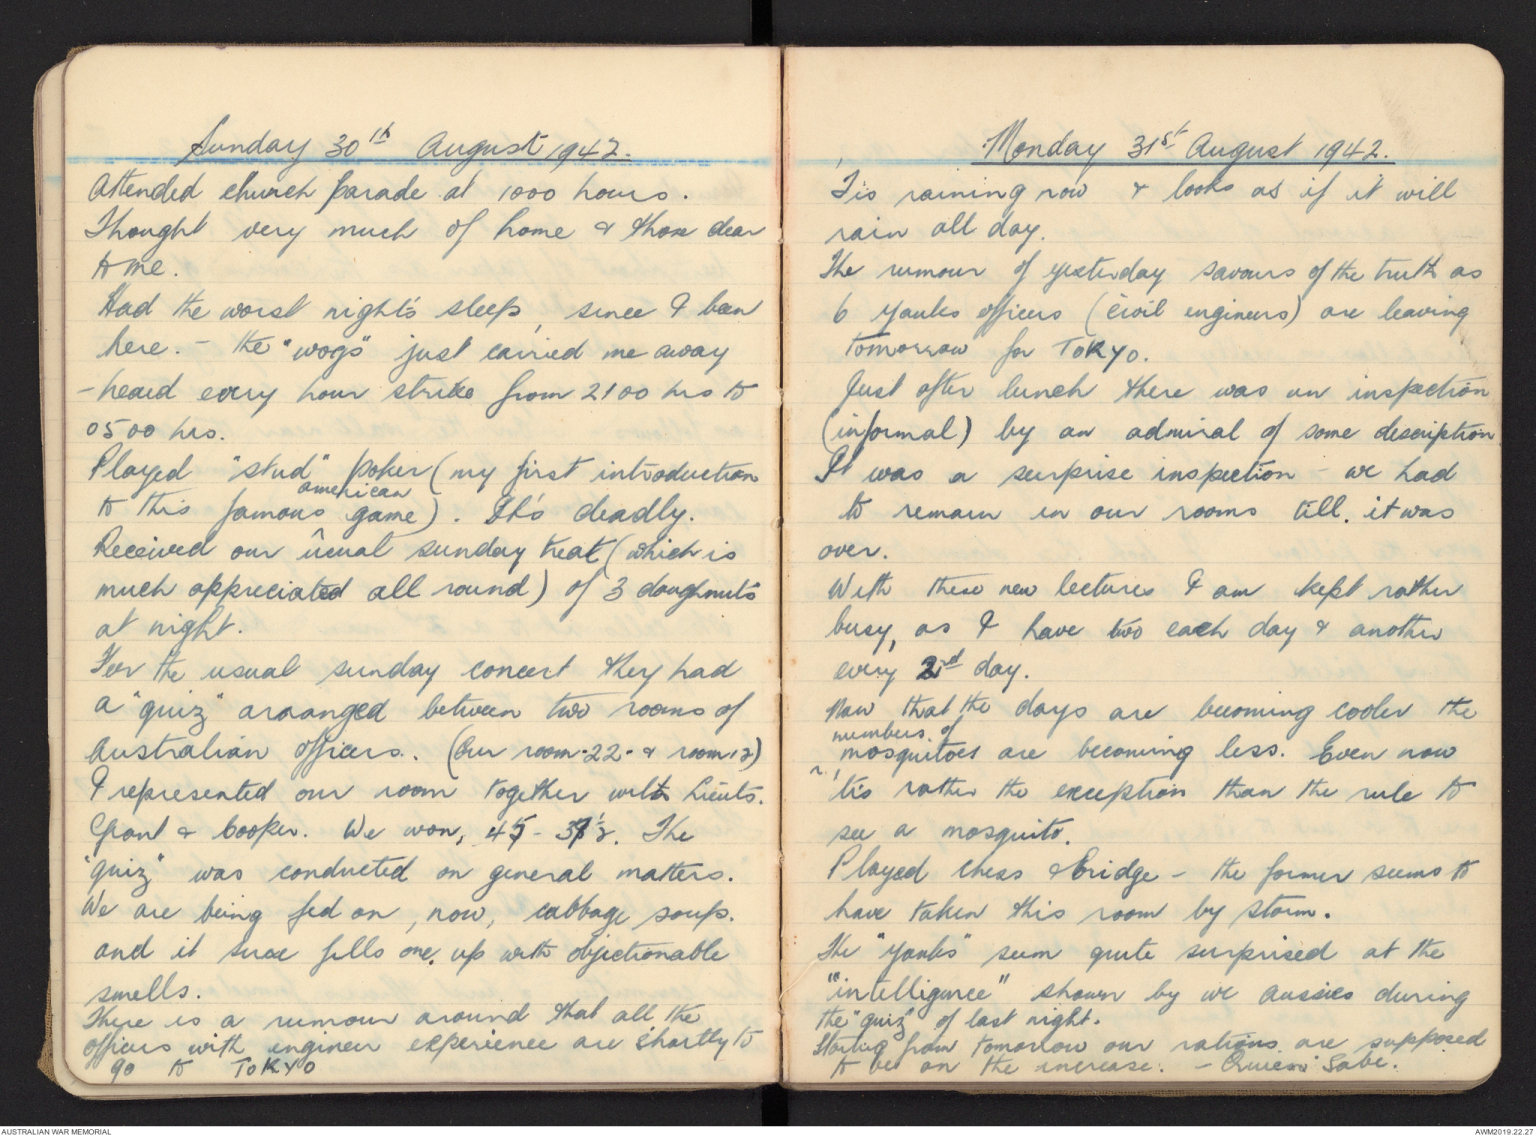 Sunday 30th August 1942.
Attended church parade at 1000 hours.
Thought very much of home & those dear
to me.
Had the worst night's sleep, since I been
here. - the "wogs" just carried me away
- heard every hour strike from 2100 hrs to
0500 hrs.
Played "stud" poker (my first introduction
american
to this famous game). It's deadly.
Received our usual sunday treat (which is
much appreciated all round) of 3 doughnuts
at night.
For the usual sunday concert they had
a "quiz" arranged between two rooms of
Australian officers. (Our room-22- & room 12)
I represented our room together with Lieuts.
Grant & Cooper. We won, 45 - 37½. The
"quiz" was conducted on general matters.
We are being fed on, now, cabbage soup.
and it sure fills one up with objectionable
smells.
There is a rumour around that all the
officers with engineer experience are shortly to
go to TOKYO
Monday 31st August 1942.
Tis raining now & looks as if it will
rain all day.
The rumour of yesterday savours of the truth as
6 Yanks officers (civil engineers) are leaving
tomorrow for TOKYO.
Just after lunch there was an inspection
(informal) by an admiral of some description
It was a surprise inspection - we had
to remain in our rooms till it was
over.
With these new lectures I am kept rather
busy, as I have two each day & another
every 2nd day.
Now that the days are becoming cooler the
numbers of
mosquitoes are becoming less. Even now
'tis rather the exception than the rule to
see a mosquito.
Played chess & Bridge - the former seems to
have taken this room by storm.
The "Yanks" seem quite surprised at the
"intelligence" shown by we Aussies during
the "quiz" of last night.
Starting from tomorrow our rations are supposed
to be on the increase. - Quien Sabe.
AUSTRALIAN WAR MEMORIAL
AWM2019.22.27